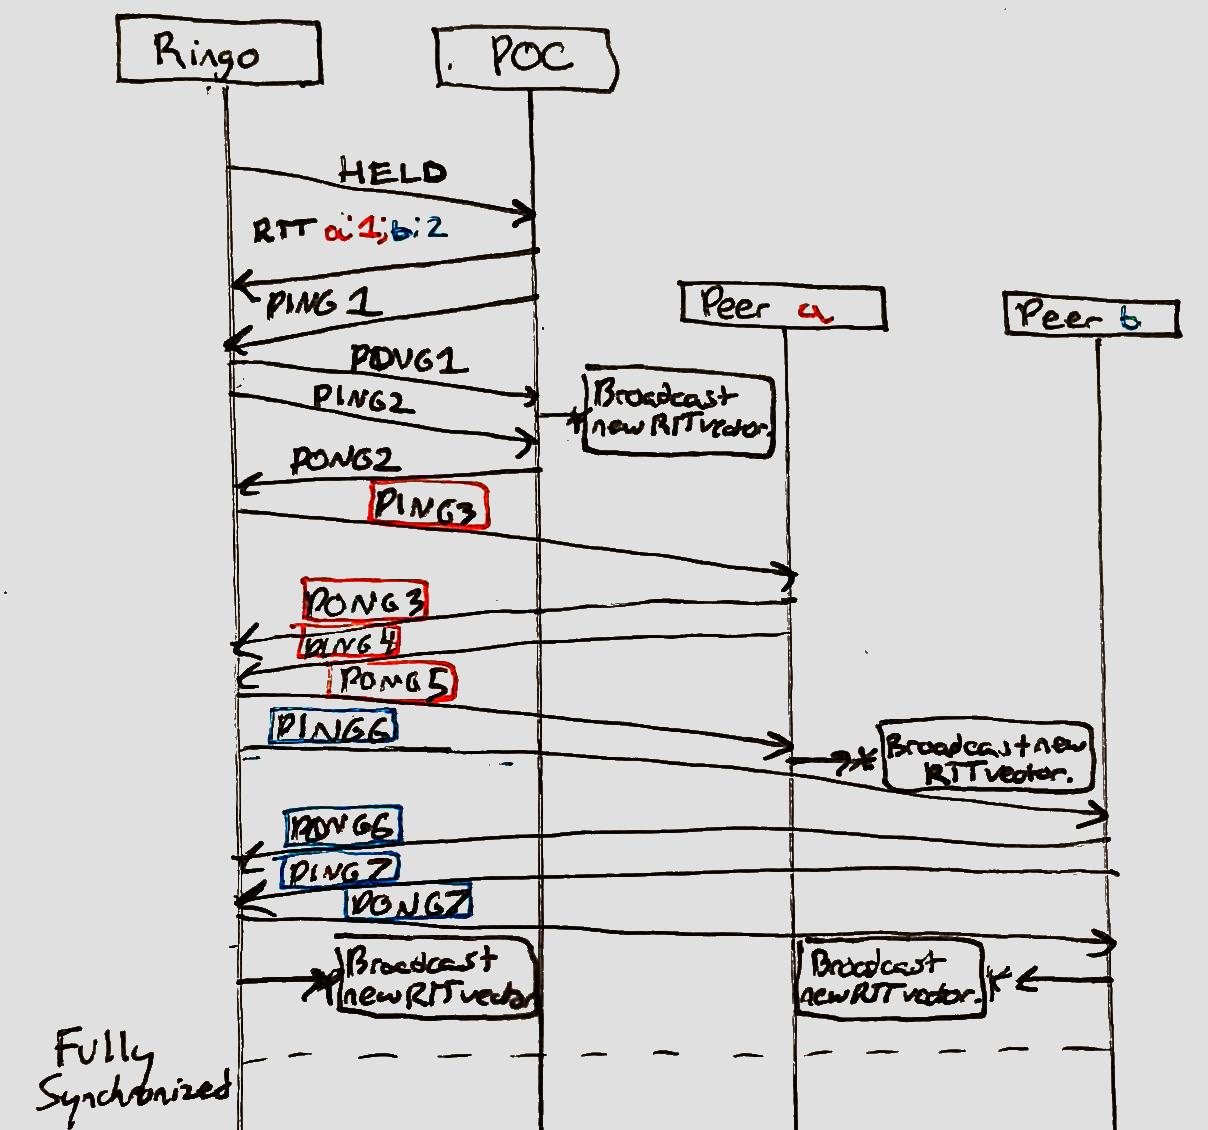 Ringo
POC
HELD
RTT a:1;b:2
PING 1
Peer a
Peer b
PONG1
PING2
Broadcast
new RTT vector.
PONG2
PING3
PONG 3
PING 4
PONG 5
PING6
Broadcast new
RTT vector.
PONG6
PING 7
PONG7
Broadcast
new RTT vector
Broadcast
new RTT vector.
Fully
Synchronized